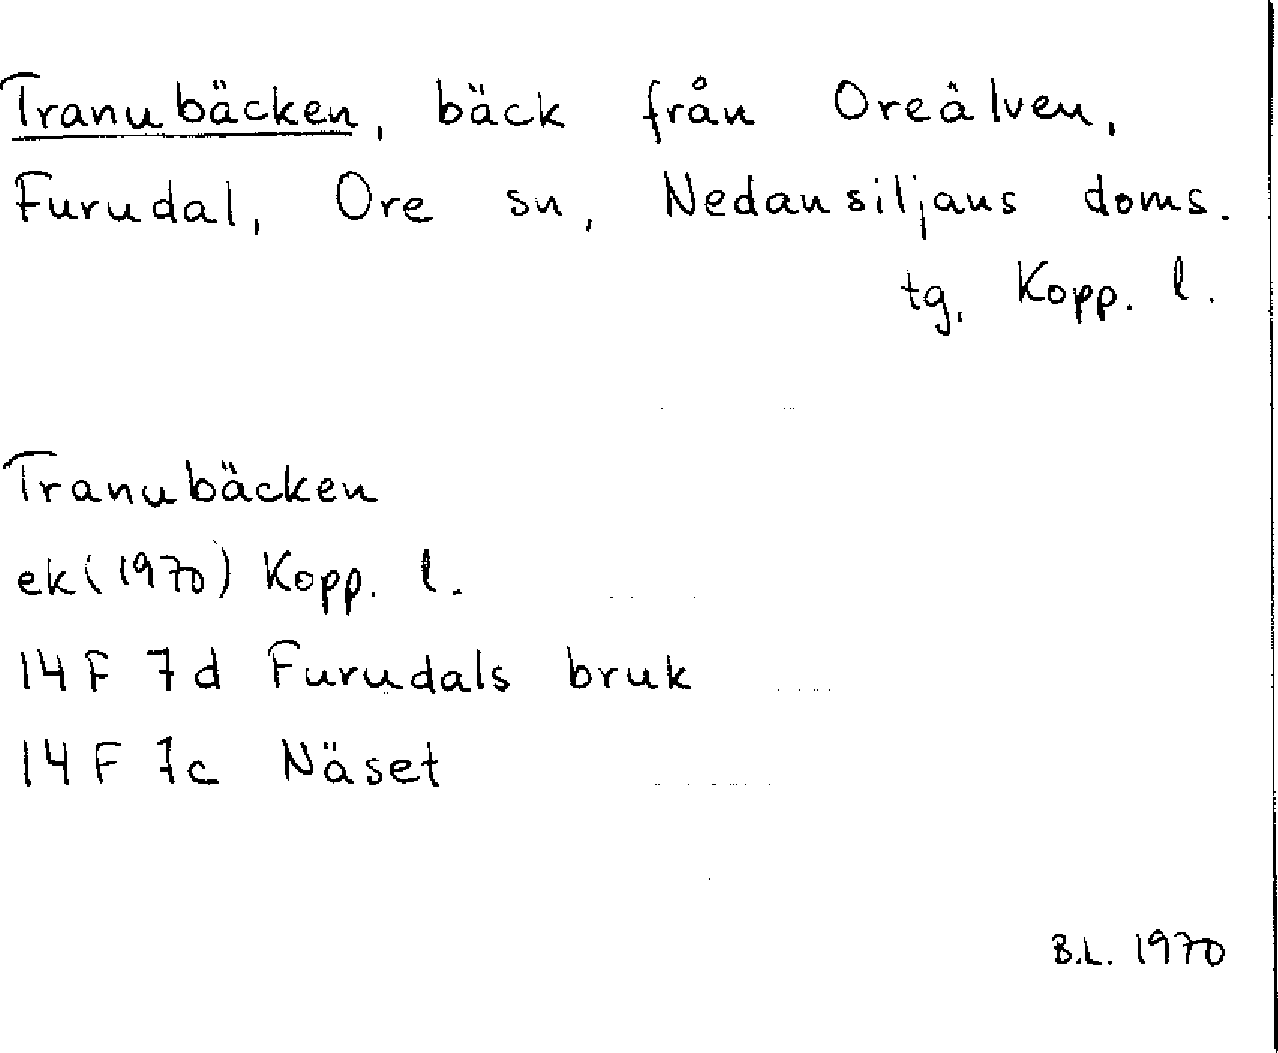 Tranubäcken, bäck från Oreälven,
Furudal, Ore sn, Nedansiljans doms.
tg, Kopp. l.
Tranubäcken
ek (1970) Kopp. l.
14 F 7d Furudals bruk
14 F 7c Näset
B.L. 1970